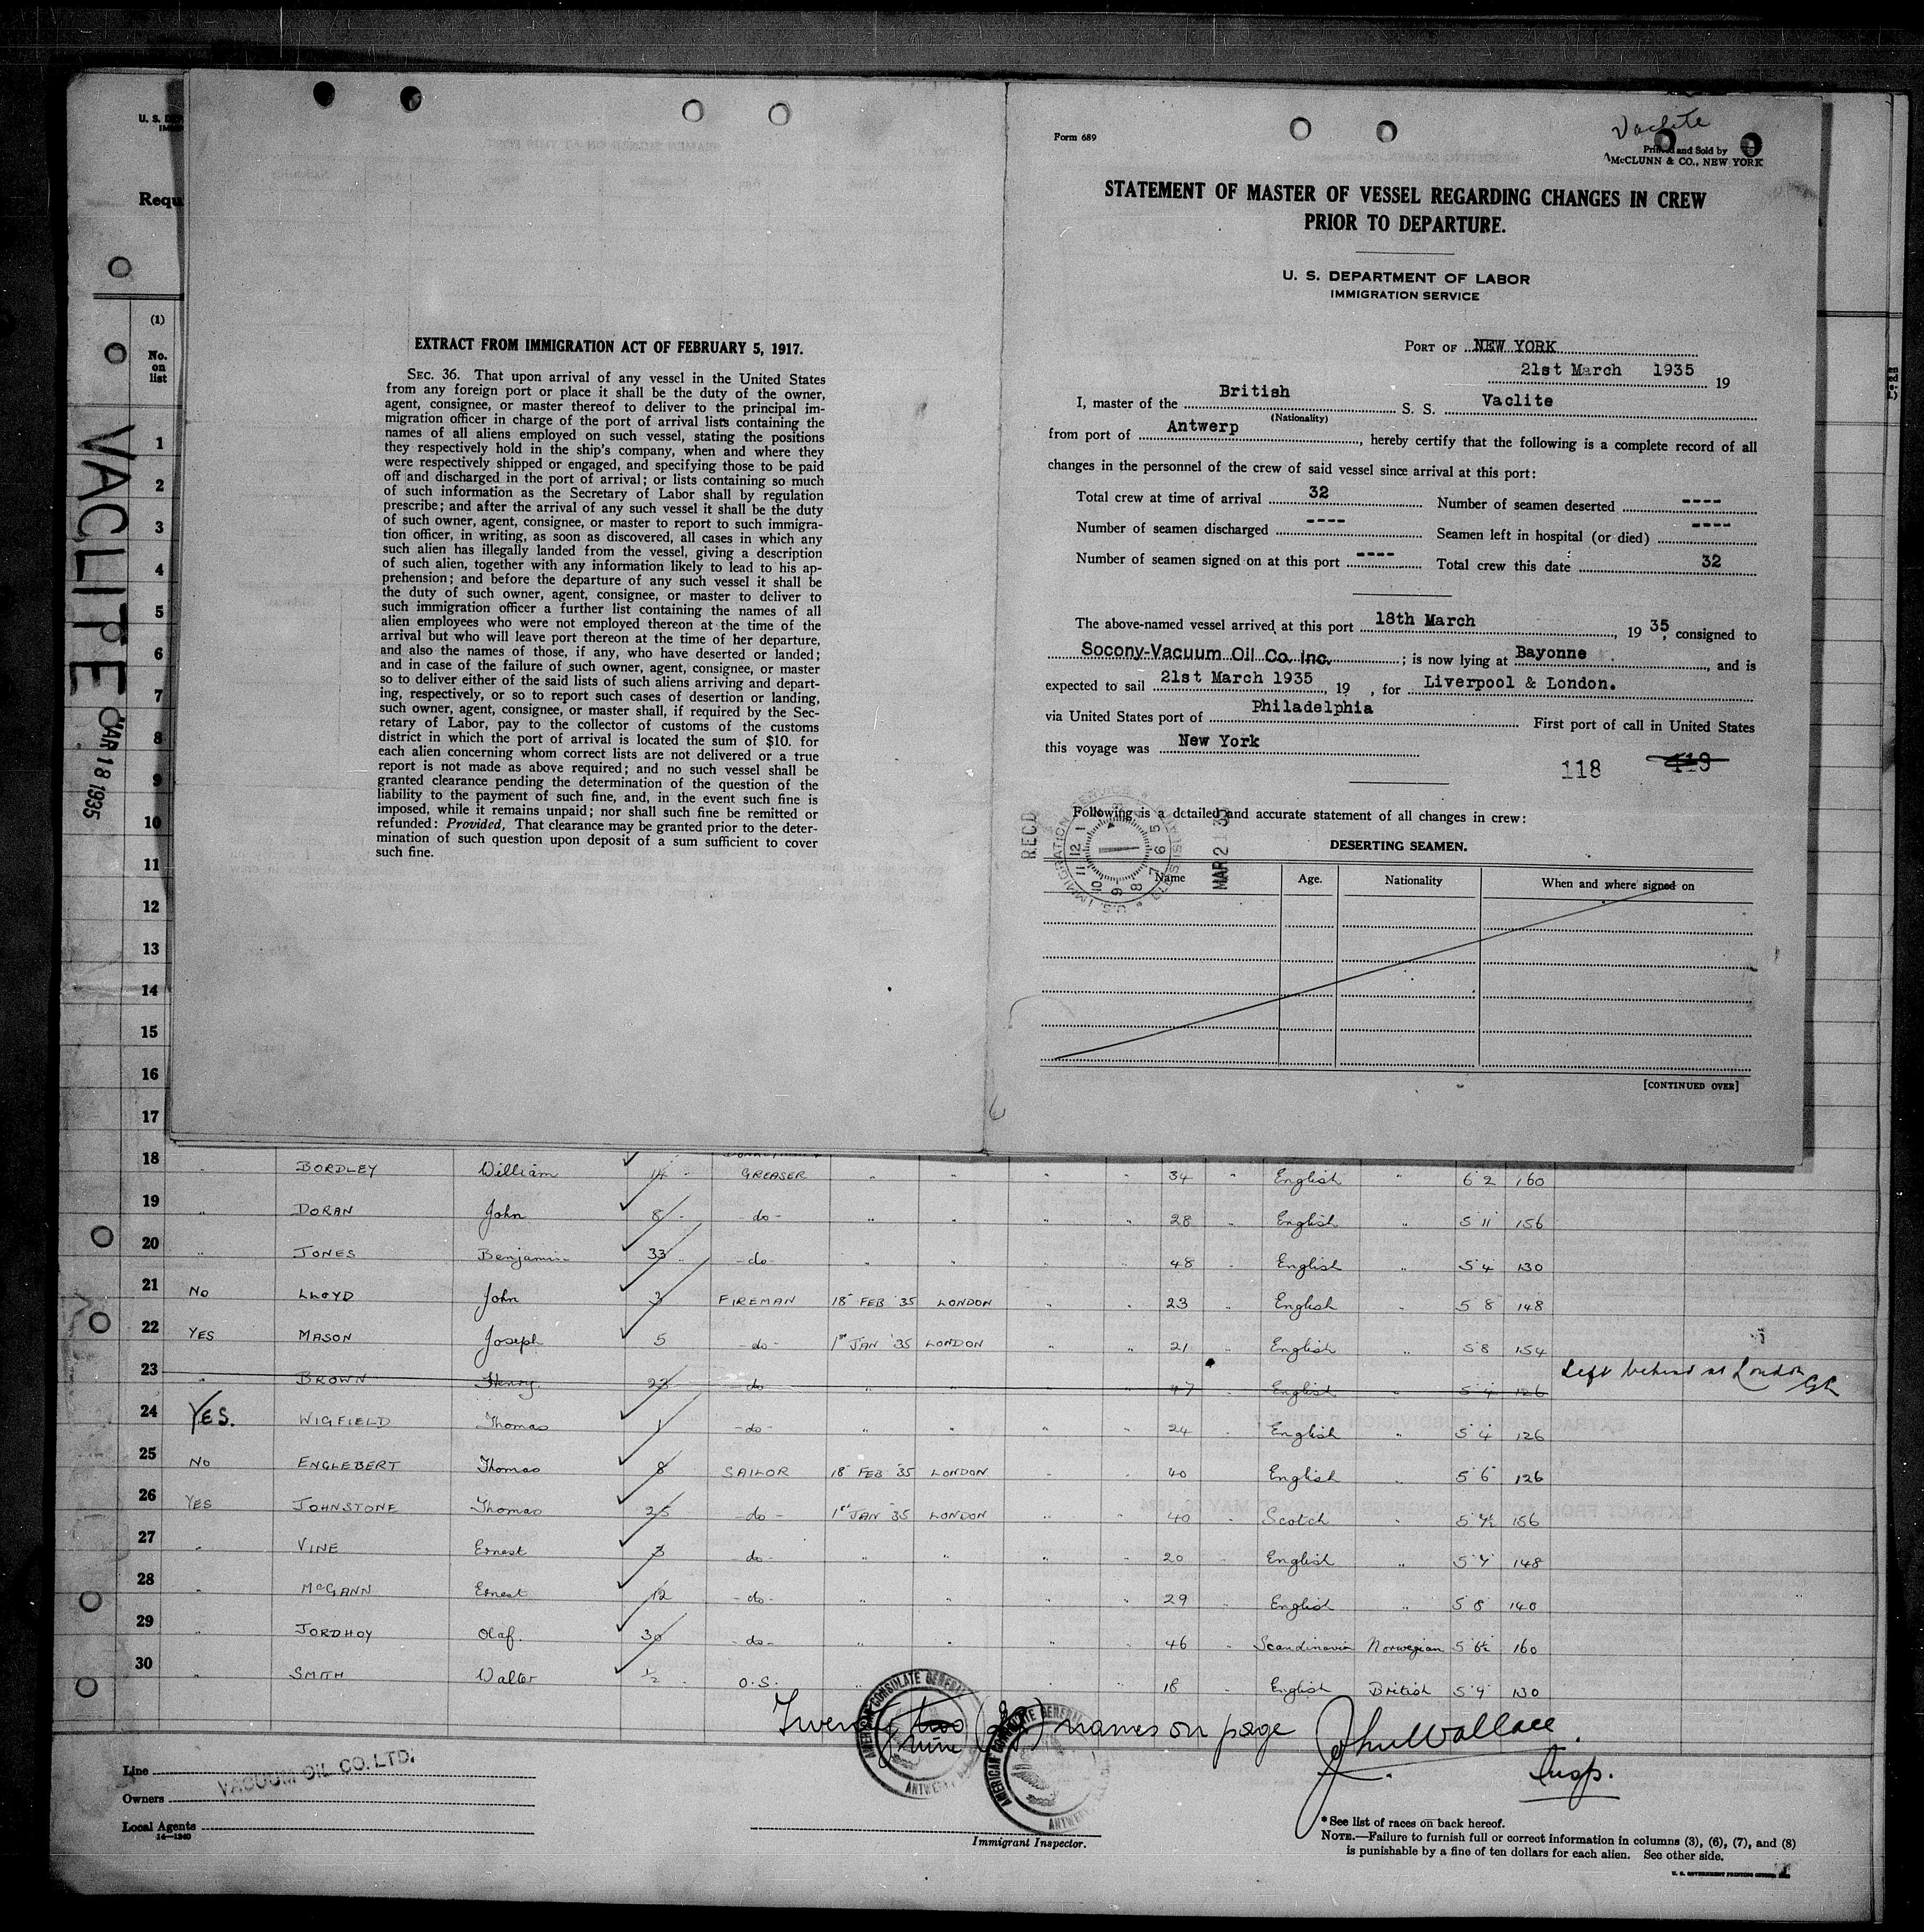 U. S. DEP
IMM
Requ
(1)
No.
on
list
VACLITE
MAR 18 1935
1
2
3
4
5
6
7
8
9
10
11
12
13
14
15
16
17
EXTRACT FROM IMMIGRATION ACT OF FEBRUARY 5, 1917.
SEC. 36. That upon arrival of any vessel in the United States
from any foreign port or place it shall be the duty of the owner,
agent, consignee, or master thereof to deliver to the principal im-
migration officer in charge of the port of arrival lists containing the
names of all aliens employed on such vessel, stating the positions
they respectively hold in the ship's company, when and where they
were respectively shipped or engaged, and specifying those to be paid
off and discharged in the port of arrival; or lists containing so much
of such information as the Secretary of Labor shall by regulation
prescribe; and after the arrival of any such vessel it shall be the duty
of such owner, agent, consignee, or master to report to such immigra-
tion officer, in writing, as soon as discovered, all cases in which any
such alien has illegally landed from the vessel, giving a description
of such alien, together with any information likely to lead to his ap-
prehension; and before the departure of any such vessel it shall be
the duty of such owner, agent, consignee, or master to deliver to
such immigration officer a further list containing the names of all
alien employees who were not employed thereon at the time of the
arrival but who will leave port thereon at the time of her departure,
and also the names of those, if any, who have deserted or landed;
and in case of the failure of such owner, agent, consignee, or master
so to deliver either of the said lists of such aliens arriving and depart-
ing, respectively, or so to report such cases of desertion or landing,
such owner, agent, consignee, or master shall, if required by the Sec-
retary of Labor, pay to the collector of customs of the customs
district in which the port of arrival is located the sum of $10. for
each alien concerning whom correct lists are not delivered or a true
report is not made as above required; and no such vessel shall be
granted clearance pending the determination of the question of the
liability to the payment of such fine, and, in the event such fine is
imposed, while it remains unpaid; nor shall such fine be remitted or
refunded: Provided, That clearance may be granted prior to the deter-
mination of such question upon deposit of a sum sufficient to cover
such fine.
Form 689
Vaclite
Printed and Sold by
McCLUNN & CO., NEW YORK
STATEMENT OF MASTER OF VESSEL REGARDING CHANGES IN CREW
PRIOR TO DEPARTURE.
U. S. DEPARTMENT OF LABOR
IMMIGRATION SERVICE
PORT OF NEW YORK
21st March 1935 19
I, master of the British S. S. Vaclite
(Nationality)
from port of Antwerp, hereby certify that the following is a complete record of all
changes in the personnel of the crew of said vessel since arrival at this port:
Total crew at time of arrival 32 Number of seamen deserted ----
Number of seamen discharged ---- Seamen left in hospital (or died) ----
Number of seamen signed on at this port ---- Total crew this date 32
The above-named vessel arrived at this port 18th March, 1935, consigned to
Socony-Vacuum Oil Co. Inc.; is now lying at Bayonne, and is
expected to sail 21st March 1935, 19 , for Liverpool & London.
via United States port of Philadelphia First port of call in United States
this voyage was New York
118 113
Following is a detailed and accurate statement of all changes in crew:
REC'D U.S. IMMIGRATION SERVICE MAR 21 35
DESERTING SEAMEN.
Name Age. Nationality When and where signed on
[CONTINUED OVER]
18 " BORDLEY William 14 GREASER " " " " 34 " English " 6 2 160
19 " DORAN John 8 -do- " " " 28 " English " 5 11 156
20 " JONES Benjamin 33 -do- " " " 48 " English " 5 4 130
21 No LLOYD John 3 FIREMAN 18 FEB '35 LONDON " " 23 " English " 5 8 148
22 YES MASON Joseph 5 -do- 1st JAN '35 LONDON " " 21 " English " 5 8 154
23 " BROWN Henry 23 do " " " " 47 " English " 5 4 126 Left behind at London
24 YES. WIGFIELD Thomas 1 -do- " " " " 24 " English " 5 4 126
25 No ENGLEBERT Thomas 8 SAILOR 18 FEB '35 LONDON " " 40 English " 5 6 126
26 YES JOHNSTONE Thomas 25 -do- 1st JAN '35 LONDON " " 40 " Scotch " 5 7½ 156
27 " VINE Ernest 3 do- " " " " 20 " English " 5 7 148
28 " McGANN Ernest 12 -do- " " " " 29 " English " 5 8 140
29 " JORDHOY Olaf. 30 -do- " " " " 46 " Scandinavian Norwegian 5 6½ 160
30 " SMITH Walter ½ O.S. 18 " English British 5 9 130
Twenty two nine (29) names on page John Wallace
Insp.
AMERICAN CONSULATE GENERAL ANTWERP
AMERICAN CONSULATE GENERAL ANTWERP
Line
VACUUM OIL CO. LTD.
Owners
Local Agents
14—1240
Immigrant Inspector.
*See list of races on back hereof.
NOTE.—Failure to furnish full or correct information in columns (3), (6), (7), and (8)
is punishable by a fine of ten dollars for each alien. See other side.
U. S. GOVERNMENT PRINTING OFFICE